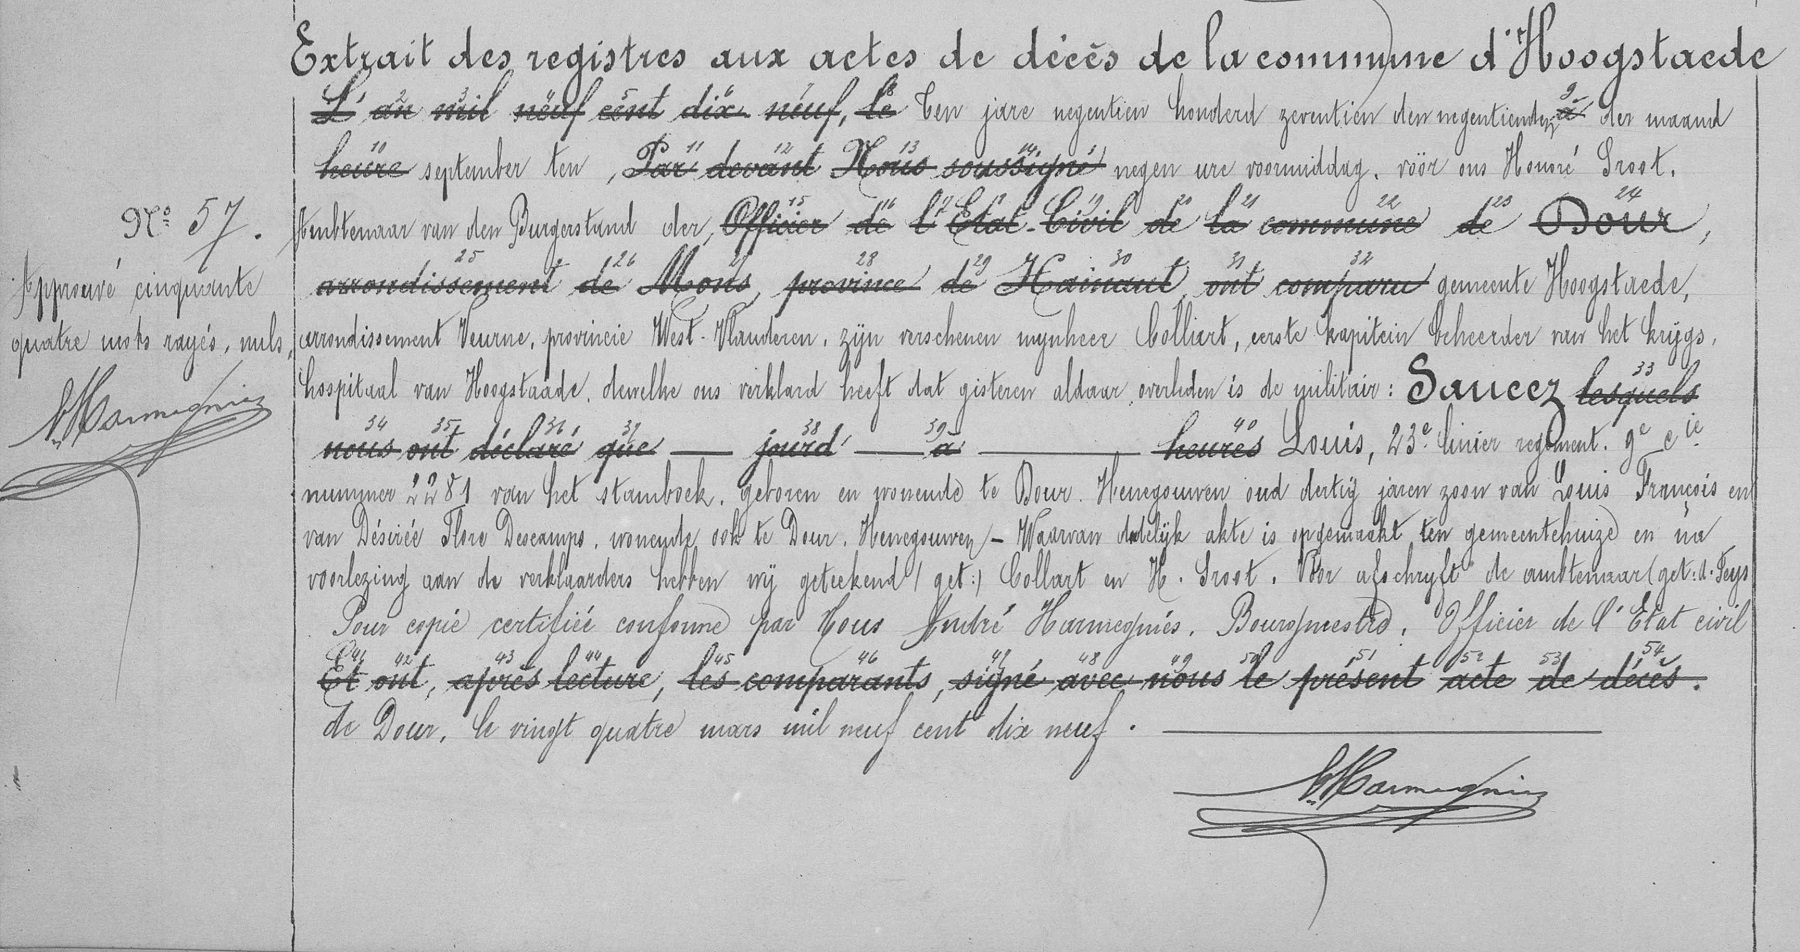 Extrait des registres aux actes de décès de la commune d'Hoogstaede
L'an mil neuf cent dix neuf, le Ten jare negentien honderd zeventien den negentienden à der maand
heure september ten, Par devant Nous soussigné negen ure voormiddag, vóór ons Honoré Groot,
Nº 57.
Ambtenaar van den Burgerstand der, Officier de l'Etat Civil de la commune de Dour,
Approuvé cinquante
arrondissement de Mons, province de Hainaut, ont comparu gemeente Hoogstaede,
quatre mots rayés, nuls,
arrondissement Veurne, provincie West-Vlanderen, zijn verschenen mynheer Colliart, eerste kapitein beheerder van het krygs,
hospitaal van Hoogstaade, dewelke ons verklard heeft dat gisteren aldaar overleden is de militair: Saucez lesquels
nous ont déclaré que — jourd' — à — heures Louis, 23e linier regiment. 9e cie
nummer 2281 van het stamboek, geboren en wonende te Dour. Henegouwen oud dertig jaren zoon van Louis François en
van Désirée Flore Descamps, wonende ook te Dour. Henegouwen – Waarvan dadelyk akte is opgemaakt ten gemeentehuize en na
voorlezing aan de verklaarders hebben wy geteekend (get:) Collart en H. Groot. Voor afschryft de ambtenaar (get:
Pour copie certifiée conforme par Nous André Harmegnies, Bourgmestre, Officier de l'Etat civil
Et ont, après lecture, les comparants, signé avec nous le présent acte de décès.
de Dour, le vingt quatre mars mil neuf cent dix neuf.